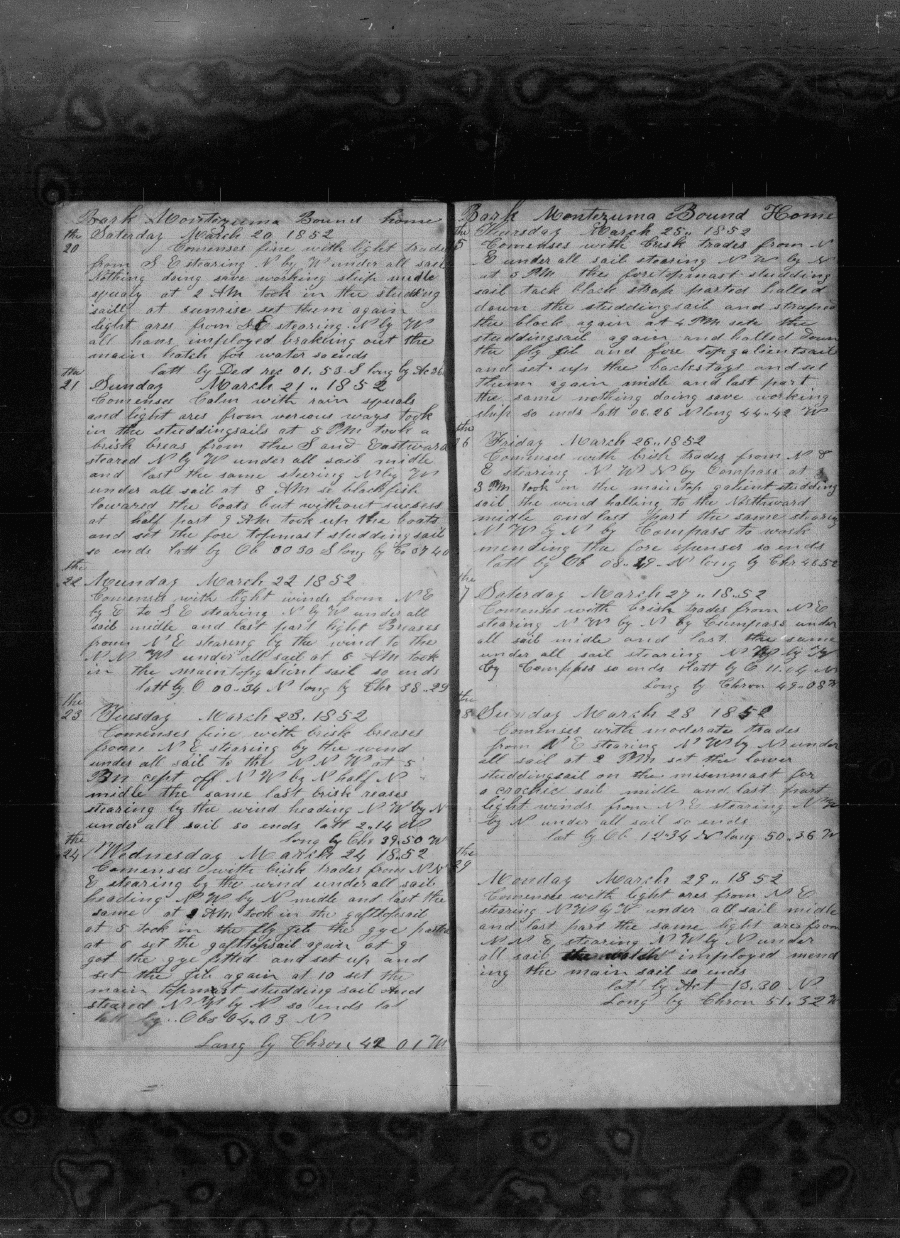 Bark Montezuma Bound home
the Saturday March 20 1852
20 Comenses fine with light trades
from S E stearing N by W under all sail
Nothing doing save working ship midle
squaly at 2 AM took in the studding
sails at sunrise set them again
light ares from stearing N by W
all hans imployed braking out the
main hatch for water so ends
the latt by Ded rec 01.53 S long by Ac 36
21 Sunday March 21 .. 1852
Comenses Calm with rain squals
and light ares from verious ways took
in the studdingsails at 5 PM took a
brisk breas from the S and Eastward
steared N by W under all sail midle
and last the same stering N by W
under all sail at 8 AM blackfish
lowared the boats but without sucsess
at half past 9 AM took up the boats
and set the fore topmast studding sail
so ends latt by Ob 00 30 S long by Cr 37 40
the
22 Munday March 22 1852
Comenses with light winds from N E
by E to S E stearing N by W under all
sail midle and last part light Breases
from N E stearing by the wind to the
N N W under all sail at 6 AM took
in the maintopgalint sail so ends
latt by O 00.34 N long by Chr 38.29
the
23 Tuesday March 23. 1852
Comenses fine with brisk breases
from N E stearing by the wind
under all sail to the N N W at 5
PM cept off N W by N half N
midle the same last brisk reases
stearing by the wind heading N W by N
under all sail so ends latt 2.14 N
the long by Chr 39.50 W
24 Wednesday March 24 1852
Comenses with brisk trades from N N
E stearing by the wind under all sail
heading N W by N midle and last the
same at 2 AM took in the gafttopsail
at 5 took in the fly jib the gye parted
at 6 set the gafttopsail again at 9
got the gye fitted and set up and
set the jib again at 10 set the
main topmast studding sail and
steared N W by N so ends lat
latt by .. Obs 04.03 N
Long by Chron 42 01 W
Bark Montezuma Bound Home
the Thursday March 25 .. 1852
5 Comenses with brisk trades from N
E under all sail stearing N W by N
at 5 PM the foretopmast studding
sail tack block strap parted halled
down the studdingsail and straped
the block again at 4 PM sete the
studdingsail again and halled down
the fly jib and fore topgalientsail
and set up the backstays and set
them again midle and last part
the same nothing doing save working
ship so ends latt 06.26 N long 44.42 W
the
6 Friday March 26 .. 1852
Comenses with brisk trades from N &
E stearing N W N by Compass at
3 PM took in the maintop galient studding
sail the wind halling to the Northward
midle and last part the same stearing
N W by N by Compass to work
mending the fore spenser so ends
latt by Ob 08.29 N long by Chr 46.52
the
7 Saturday March 27 .. 1852
Comenses with brisk trades from N E
stearing N W by N by Cumpass under
all sail midle and last the same
under all sail stearing N W by W
by Compass so ends latt by O 11.04 N
Long by Chron 49.08 W
the
8 Sunday March 28 1852
Comenses with moderate trades
from N E stearing N W by N under
all sail at 2 PM set the lower
studdingsail on the misenmast for
a crochic sail midle and last part
light winds from N E stearing N W
by N under all sail so ends
lat by Ob 12.34 N long 50.36 W
the
29
Monday March 29 .. 1852
Comenses with light ares from N E
stearing N W by N under all sail midle
and last part the same light ares from
N N E stearing N W by N under
all sail imployed mend
ing the main sail so ends
lat by Act 13.30 N
Long by Chron 51.32 W